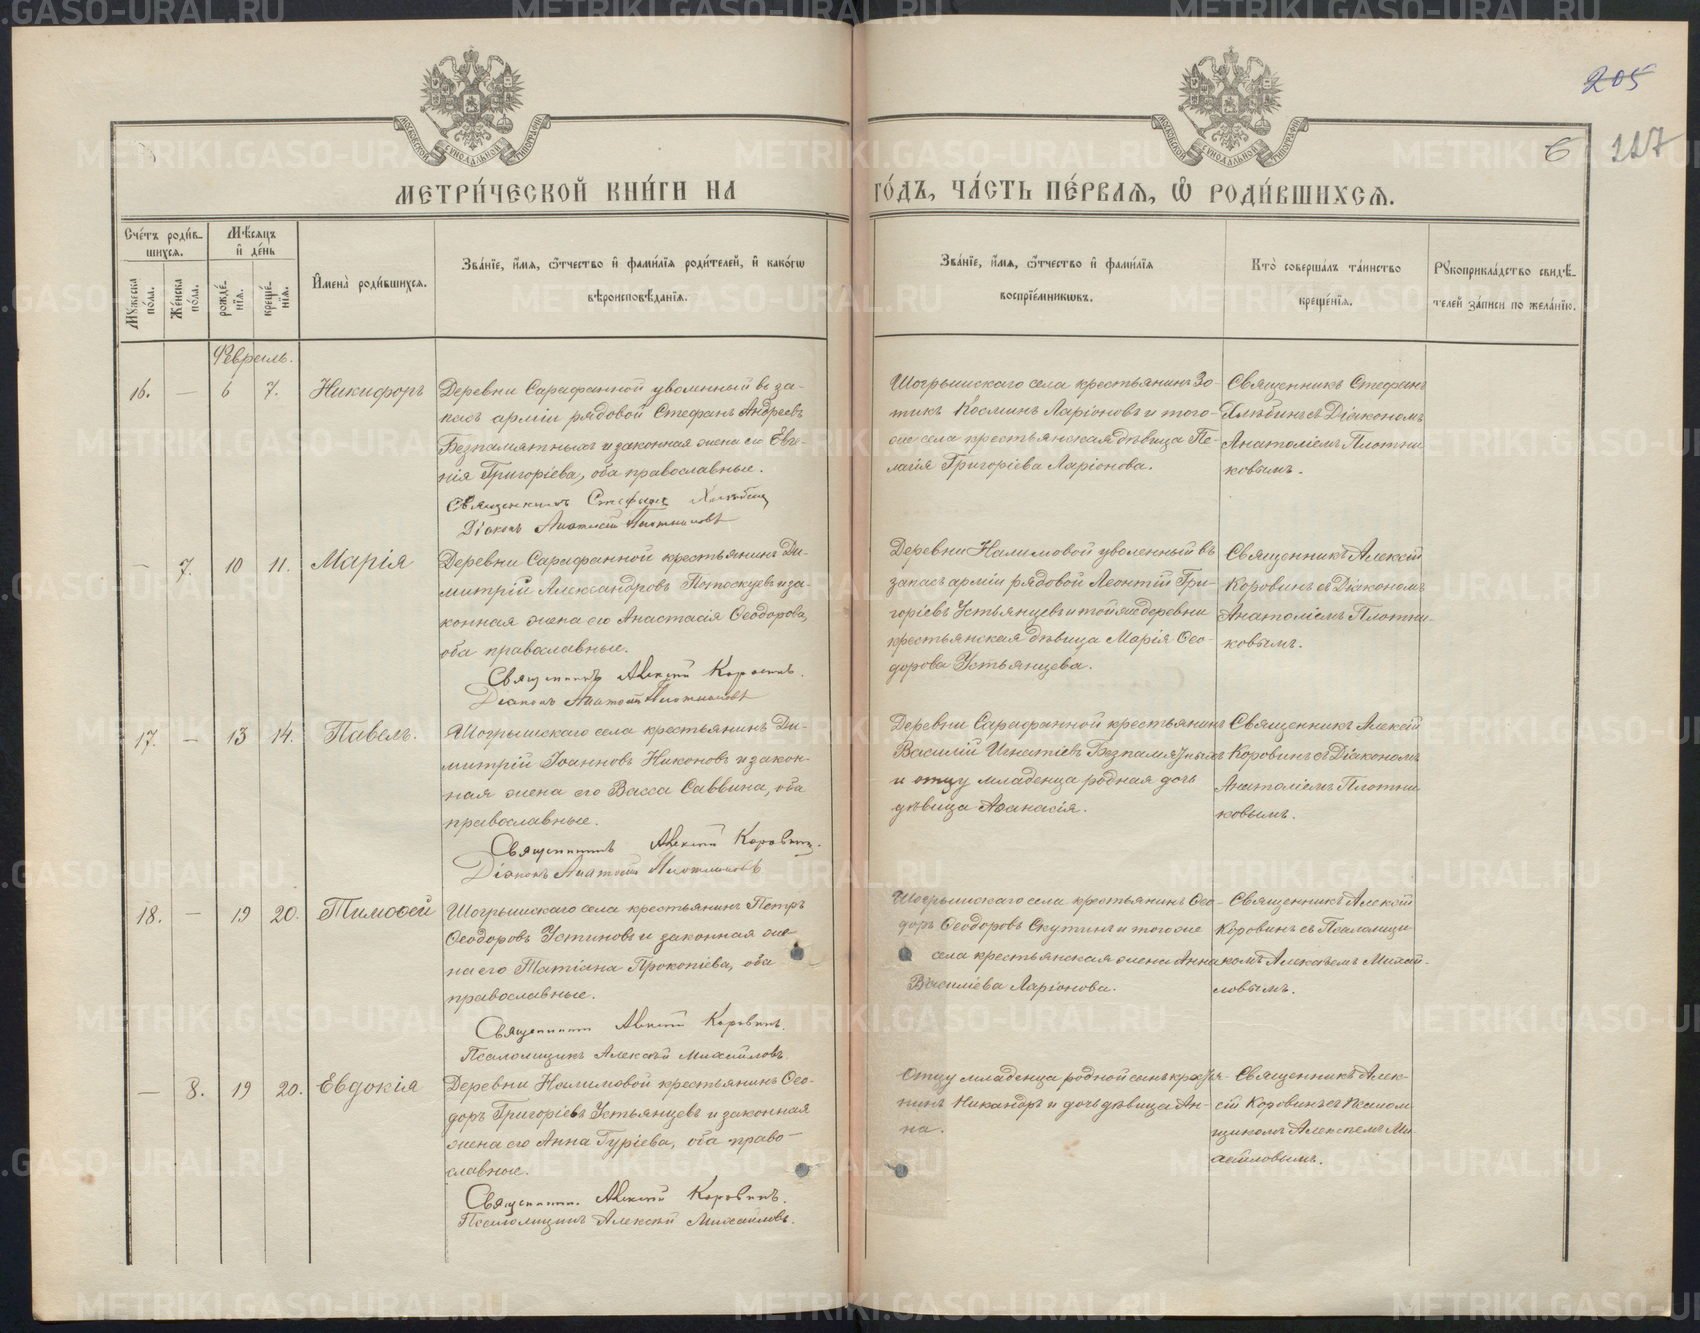 205
6 117
МЕТРИ́ЧЕСКОЙ КНИ́ГИ НА
ГО́ДЪ, ЧА́СТЬ ПЕ́РВАЯ, Ѡ РОДИ́ВШИХСЯ.
Сче́тъ роди́в-
шихся.
Мѣ́сяцъ
и де́нь
Му́жеска
по́ла.
Же́нска
по́ла.
рожде́-
нїя.
креще́-
нїя.
Имена̀ роди́вшихся.
Зва́нїе, и́мя, ѻ́тчество и фами́лїя роди́телей, и како́гѡ
вѣроисповѣ́данїя.
Зва́нїе, и́мя, ѻ́тчество и фами́лїя
воспрїе́мникѡвъ.
Кто̀ соверша́лъ та́инство
креще́нїя.
Рукоприкла́дство свидѣ́-
телей за́писи по жела́нїю.
Февраль.
16. — 6 7. Никифоръ
Деревни Сарафанной уволенный въ за-
пасъ арміи рядовой Стефанъ Андреевъ
Безпамятныхъ и законная жена его Евге-
нія Григоріева, оба православные.
Священникъ Стефанъ Хлѣбинъ
Діаконъ Анатолій Плотниковъ
Шогрышскаго села крестьянинъ Зо-
тикъ Косминъ Ларіоновъ и того-
же села крестьянская дѣвица Пе-
лагія Григоріева Ларіонова.
Священникъ Стефанъ
Хлѣбинъ съ Діакономъ
Анатоліемъ Плотни-
ковымъ.
— 7. 10 11. Марія
Деревни Сарафанной крестьянинъ Ди-
митрій Александровъ и за-
конная жена его Анастасія Ѳеодорова,
оба православные.
Священникъ Алексій Коровинъ.
Діаконъ Анатолій Плотниковъ
Деревни Налимовой уволенный въ
запасъ арміи рядовой Леонтій Гри-
горіевъ Устьянцевъ и той же деревни
крестьянская дѣвица Марія Ѳео-
дорова Устьянцева.
Священникъ Алексій
Коровинъ съ Діакономъ
Анатоліемъ Плотни-
ковымъ.
17. — 13 14. Павелъ.
Шогрышскаго села крестьянинъ Ди-
митрій Іоанновъ Никоновъ и закон-
ная жена его Васса Саввина, оба
православные.
Священникъ Алексій Коровинъ.
Діаконъ Анатолій Плотниковъ
Деревни Сарафанной крестьянинъ
Василій Игнатіевъ Безпамятныхъ
и отцу младенца родная дочь
дѣвица Аѳанасія.
Священникъ Алексій
Коровинъ съ Діакономъ
Анатоліемъ Плотни-
ковымъ.
18. — 19 20. Тимоѳей
Шогрышскаго села крестьянинъ Петръ
Ѳеодоровъ Устиновъ и законная же-
на его Татіана Прокопіева, оба
православные.
Священникъ Алексій Коровинъ.
Псаломщикъ Алексѣй Михайловъ.
Шогрышскаго села крестьянинъ Ѳео-
доръ Ѳеодоровъ Скутинъ и того же
села крестьянская жена Анна
Василіева Ларіонова.
Священникъ Алексій
Коровинъ съ Псаломщи-
комъ Алексѣемъ Михай-
ловымъ.
— 8. 19 20. Евдокія
Деревни Налимовой крестьянинъ Ѳео-
доръ Григоріевъ Устьянцевъ и законная
жена его Анна Гуріева, оба право-
славные.
Священникъ Алексій Коровинъ.
Псаломщикъ Алексѣй Михайловъ.
Отцу младенца родной сынъ крестья-
нинъ Никандръ и дочь дѣвица Ан-
на.
Священникъ Алек-
сій Коровинъ съ Псалом-
щикомъ Алексѣемъ Ми-
хайловымъ.